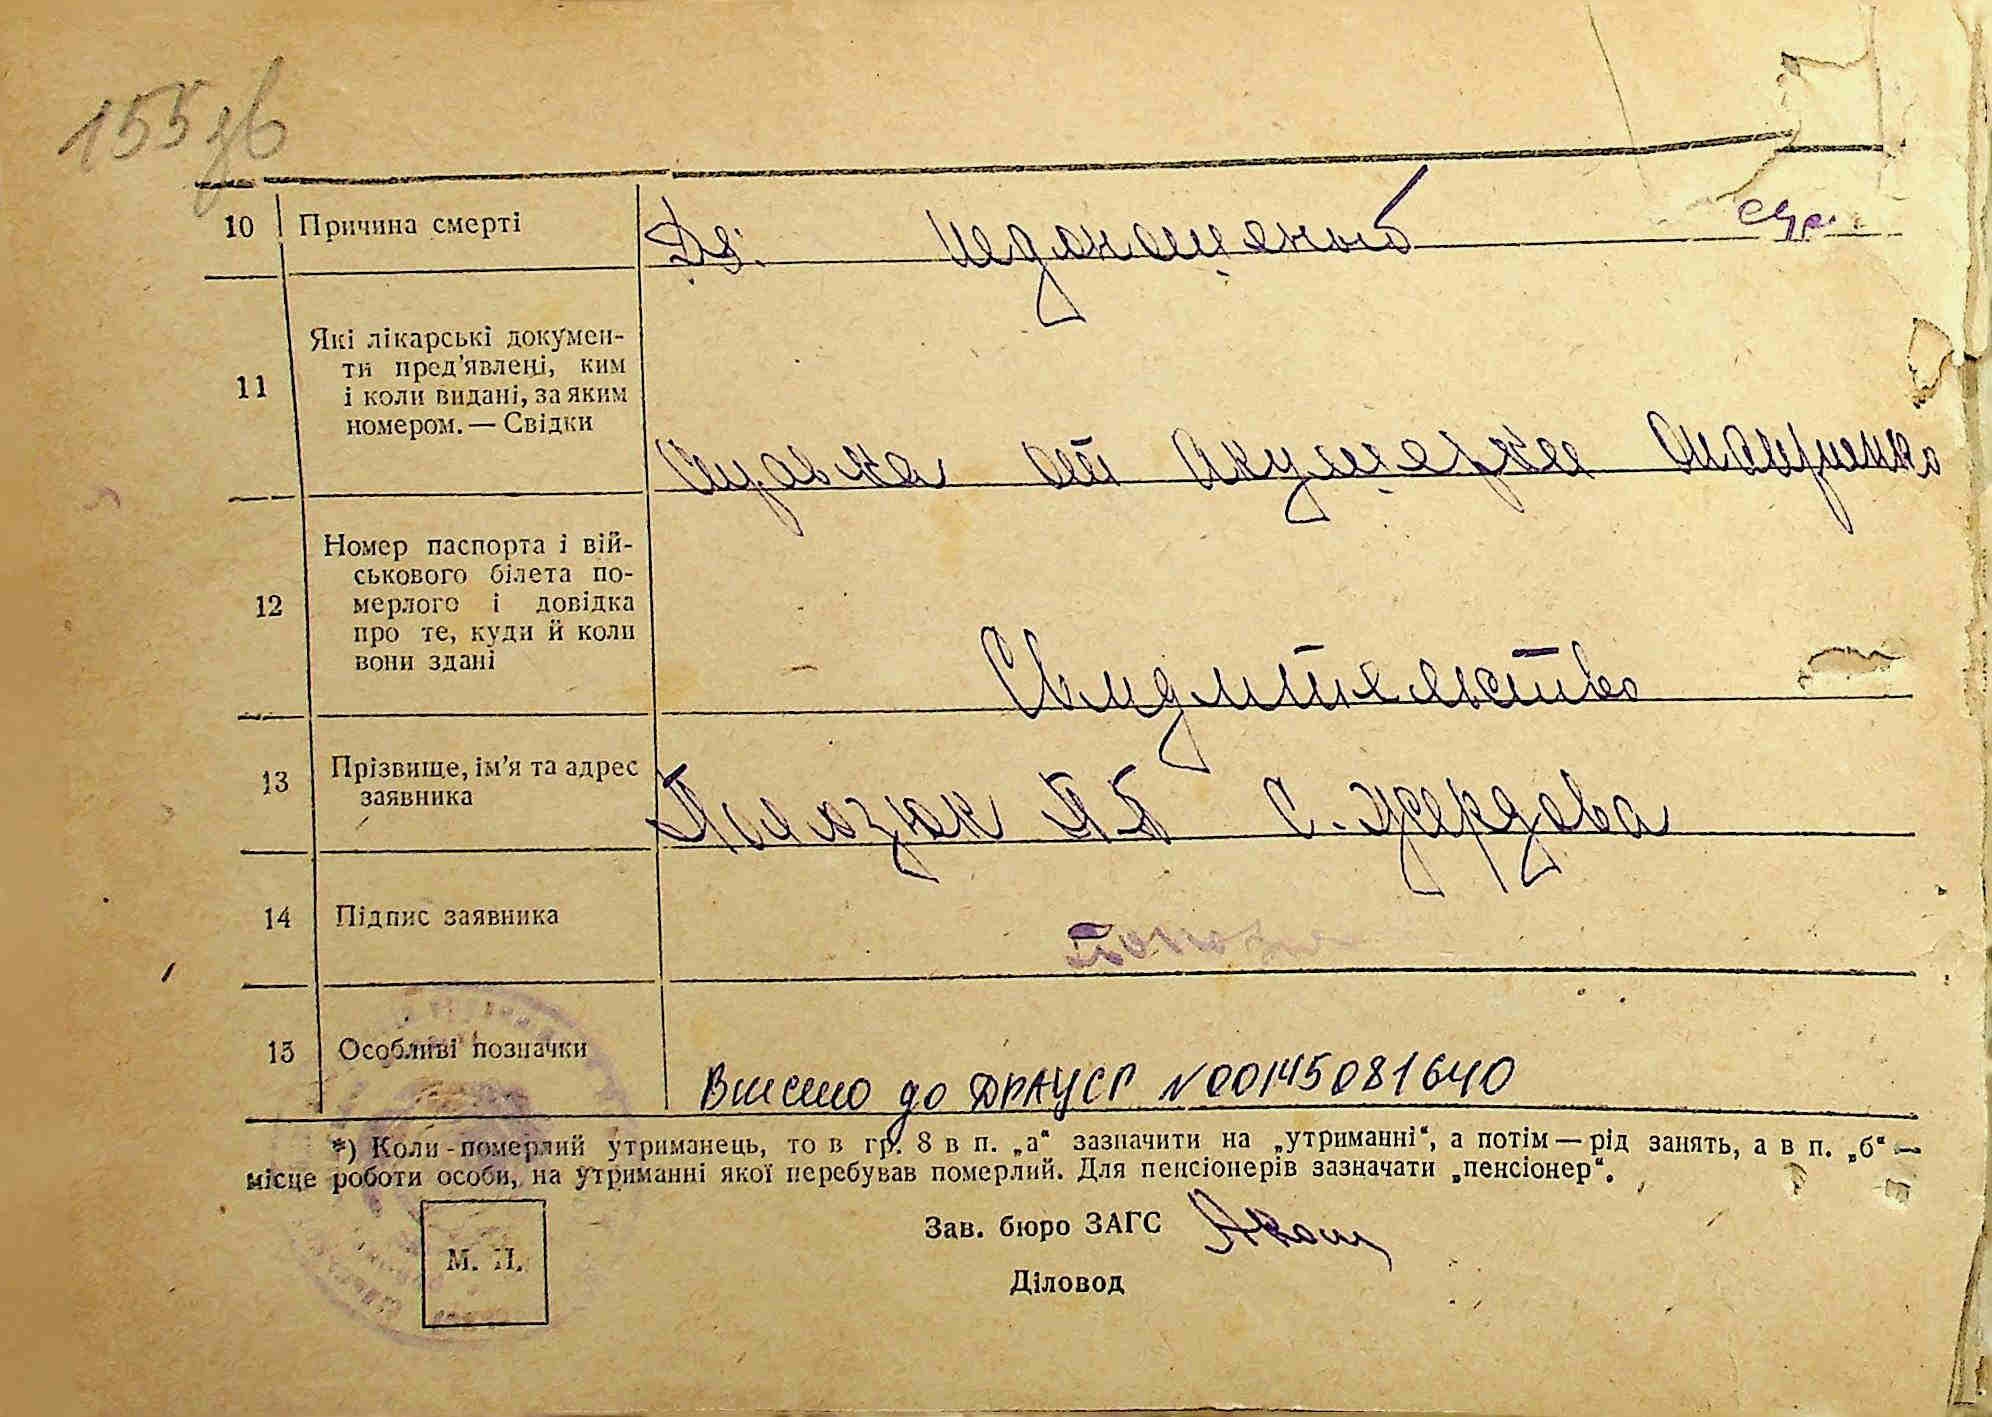 155зв
10 Причина смерті Ds: недоношеный
11 Які лікарські докумен-
ти пред'явлені, ким
і коли видані, за яким
номером. — Свідки
Справка от Акушерки
12 Номер паспорта і вій-
ськового білета по-
мерлого і довідка
про те, куди й коли
вони здані
Свидительство
13 Прізвище, ім'я та адрес
заявника
с. Жердова
14 Підпис заявника
15 Особливі позначки
Внесено до ДРАЦСГ №00145081640
*) Коли - померлий утриманець, то в гр. 8 в п. „а“ зазначити на „утриманні“, а потім — рід занять, а в п. „б“ —
місце роботи особи, на утриманні якої перебував померлий. Для пенсіонерів зазначати „пенсіонер“.
Зав. бюро ЗАГС
М. П.
Діловод